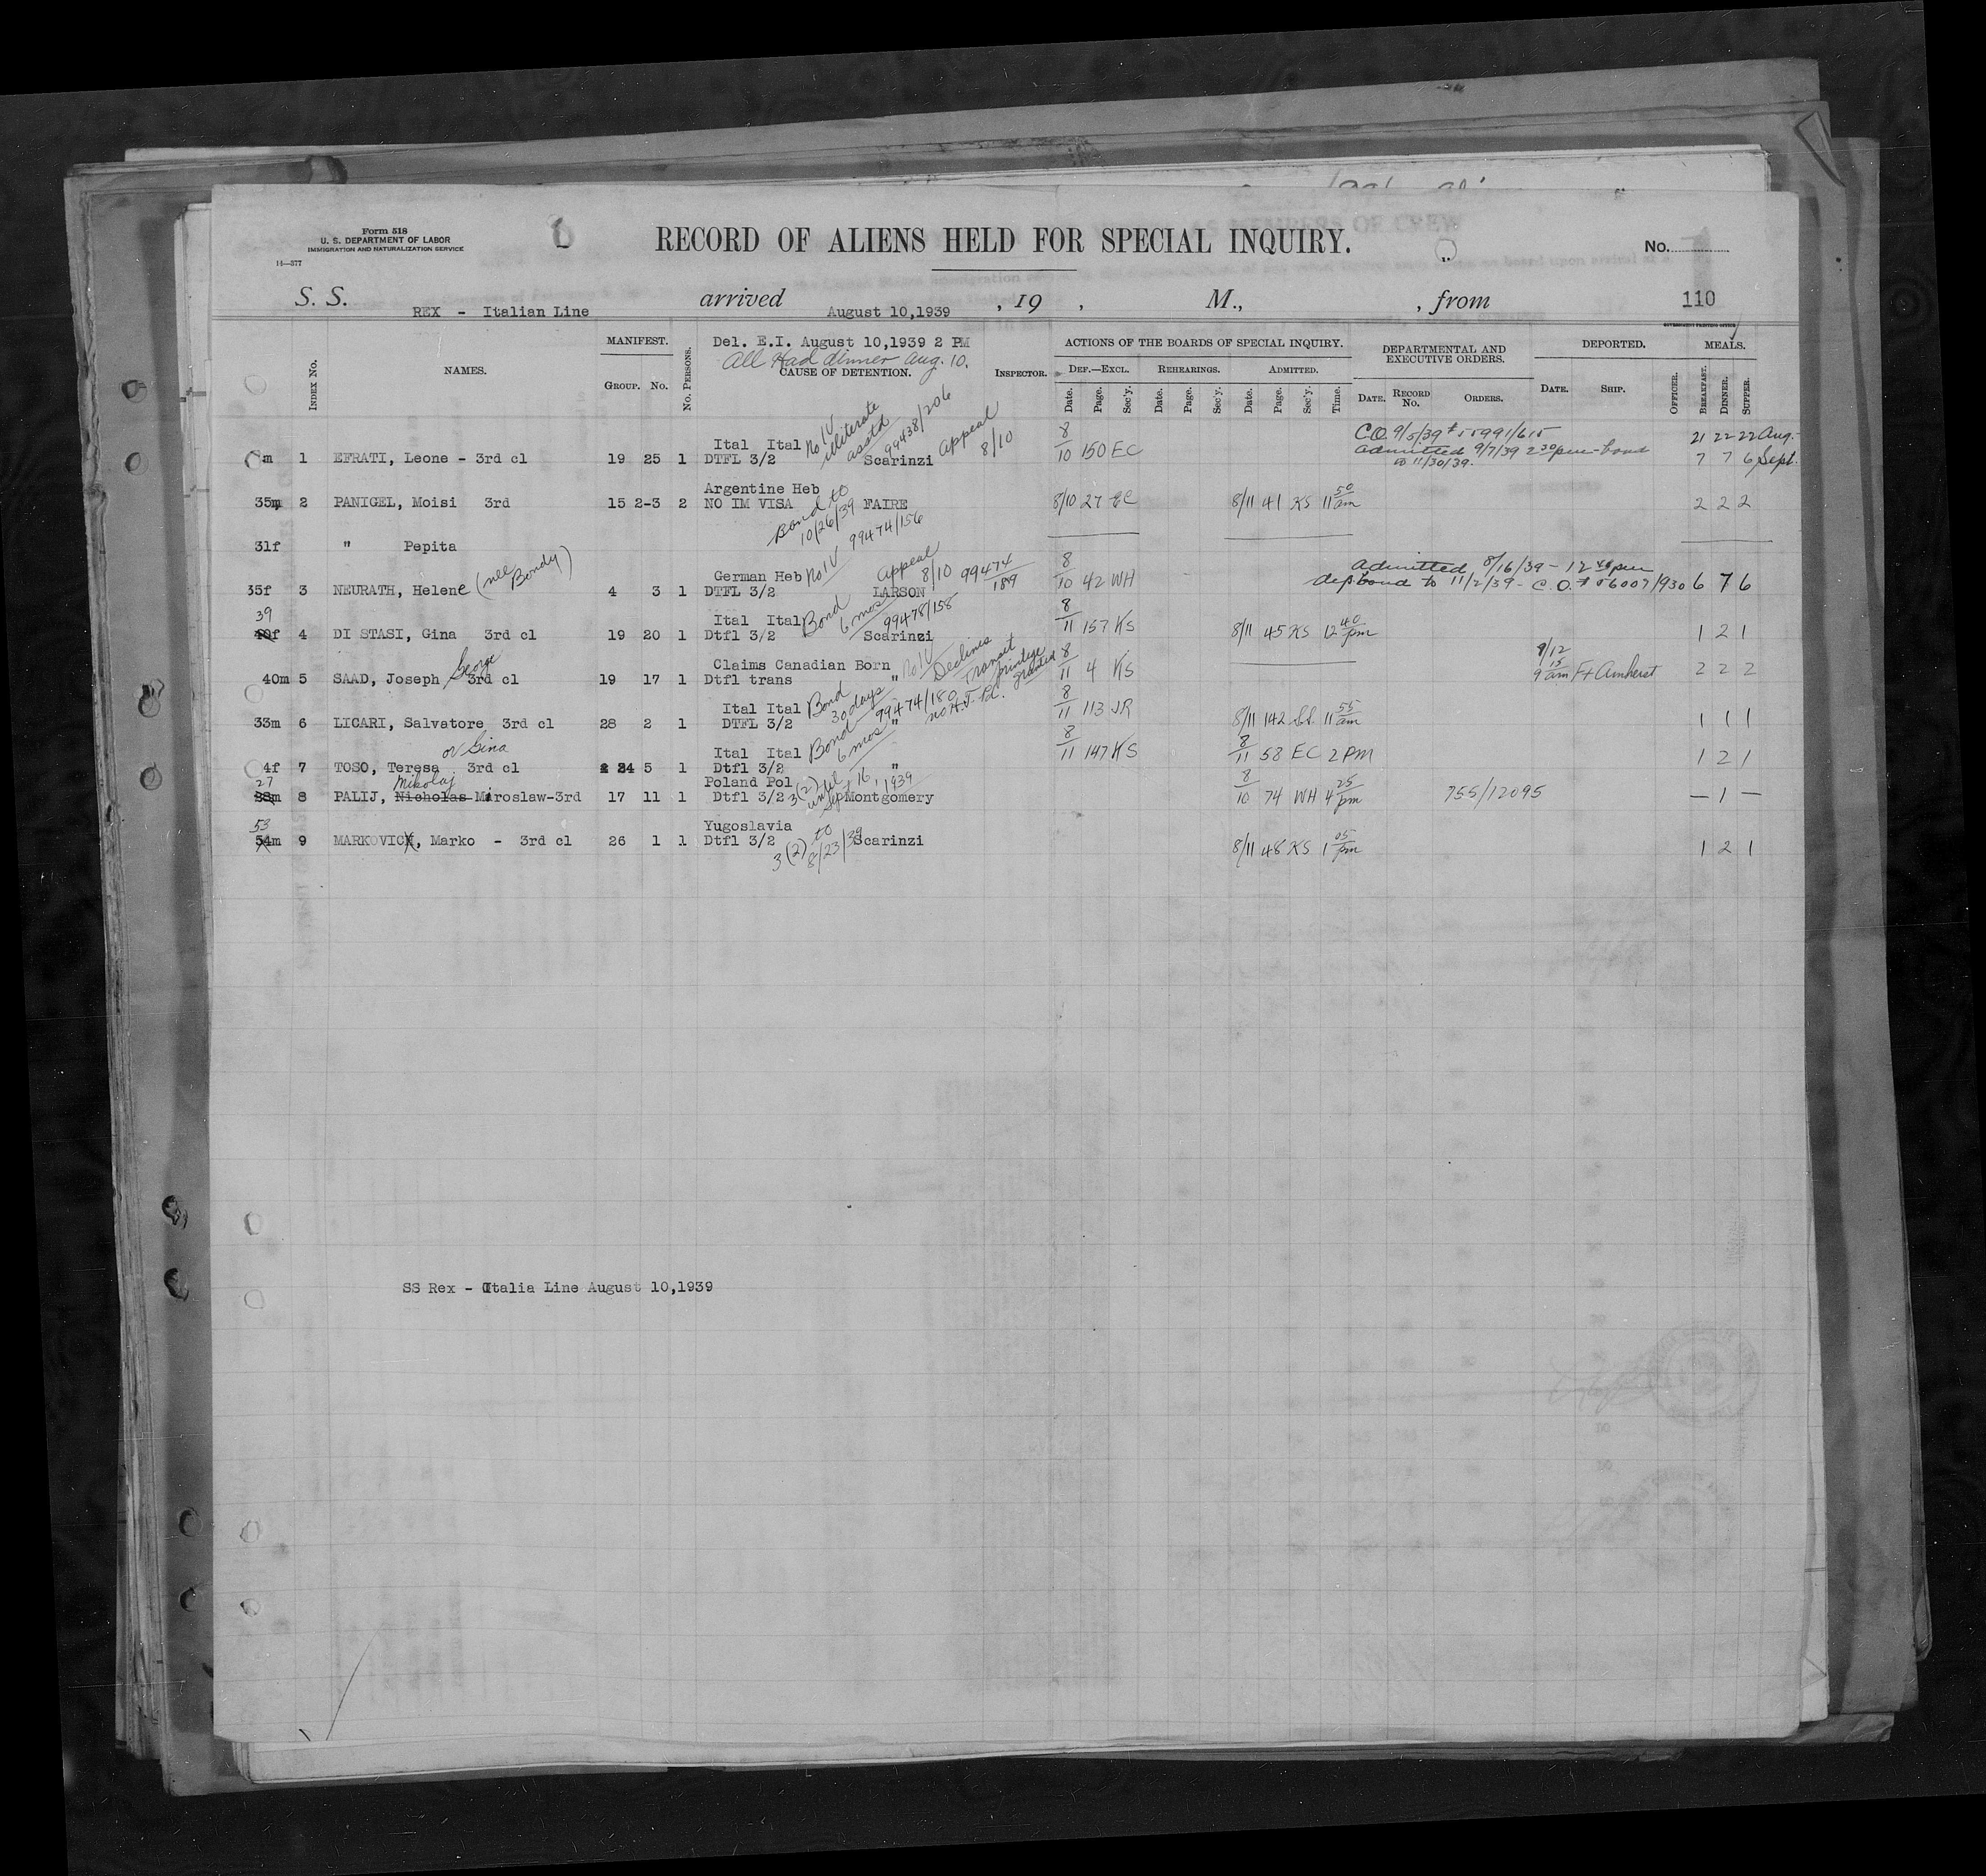 Form 518
U. S. DEPARTMENT OF LABOR
IMMIGRATION AND NATURALIZATION SERVICE
14—377
RECORD OF ALIENS HELD FOR SPECIAL INQUIRY.
No.
S. S. REX - Italian Line arrived August 10,1939 , 19 , M., , from 110
GOVERNMENT PRINTING OFFICE
INDEX No. NAMES. MANIFEST. GROUP. No. No. PERSONS. Del. E.I. August 10,1939 2 PM
All Had dinner Aug. 10.
CAUSE OF DETENTION. INSPECTOR.
ACTIONS OF THE BOARDS OF SPECIAL INQUIRY.
DEF.—EXCL. REHEARINGS. ADMITTED.
Date. Page. Sec'y. Date. Page. Sec'y. Date. Page. Sec'y. Time.
DEPARTMENTAL AND EXECUTIVE ORDERS.
DATE. RECORD No. ORDERS.
DEPORTED.
DATE. SHIP. OFFICER.
MEALS.
BREAKFAST. DINNER. SUPPER.
Ital Ital No IV illiterate asstd 99438/206 Appeal 8/10 8 C.O. 9/5/39 # 55991/615 21 22 22 Aug.
m 1 EFRATI, Leone - 3rd cl 19 25 1 DTFL 3/2 Scarinzi 10 150 EC admitted 9/7/39 2 30 pm - bond 7 7 6 Sept.
to 11/30/39.
Argentine Heb
35m 2 PANIGEL, Moisi 3rd 15 2-3 2 NO IM VISA FAIRE 8/10 27 EC 8/11 41 KS 11 50 am 2 2 2
Bond to 10/26/39 99474/156
31f " Pepita
German Heb No IV Appeal 8/10 99474/189 8 Admitted 8/16/39 - 12 40 pm
35f 3 NEURATH, Helene (nee Bondy) 4 3 1 DTFL 3/2 LARSON 10 42 WH dep bond to 11/2/39 - C.O. # 56007/930 6 7 6
39 Ital Ital Bond 6 mos 99478/158 8
40f 4 DI STASI, Gina 3rd cl 19 20 1 Dtfl 3/2 Scarinzi 11 157 KS 8/11 45 KS 12 40 pm 1 2 1
George Claims Canadian Born No IV Declines Transit privilege granted 8 8/12
40m 5 SAAD, Joseph 3rd cl 19 17 1 Dtfl trans " 11 4 KS 9 15 am Ft Amherst 2 2 2
Ital Ital Bond 30 days 99474/180 no H.T. Pd. 8
33m 6 LICARI, Salvatore 3rd cl 28 2 1 DTFL 3/2 " 11 113 JR 8/11 142 11 55 am 1 1 1
or Gina Ital Ital Bond 6 mos 8 8
4f 7 TOSO, Teresa 3rd cl 24 5 1 Dtfl 3/2 " 11 147 KS 11 58 EC 2 PM 1 2 1
27 Mikolaj Poland Pol 3(2) until Sept 16, 1939 8
38m 8 PALIJ, Nicholas Miroslaw-3rd 17 11 1 Dtfl 3/2 Montgomery 10 74 WH 4 25 pm 755/12095 — 1 —
53 Yugoslavia 3(2) to 8/23/39
54m 9 MARKOVICH, Marko - 3rd cl 26 1 1 Dtfl 3/2 Scarinzi 8/11 48 KS 1 05 pm 1 2 1
SS Rex - Italia Line August 10,1939